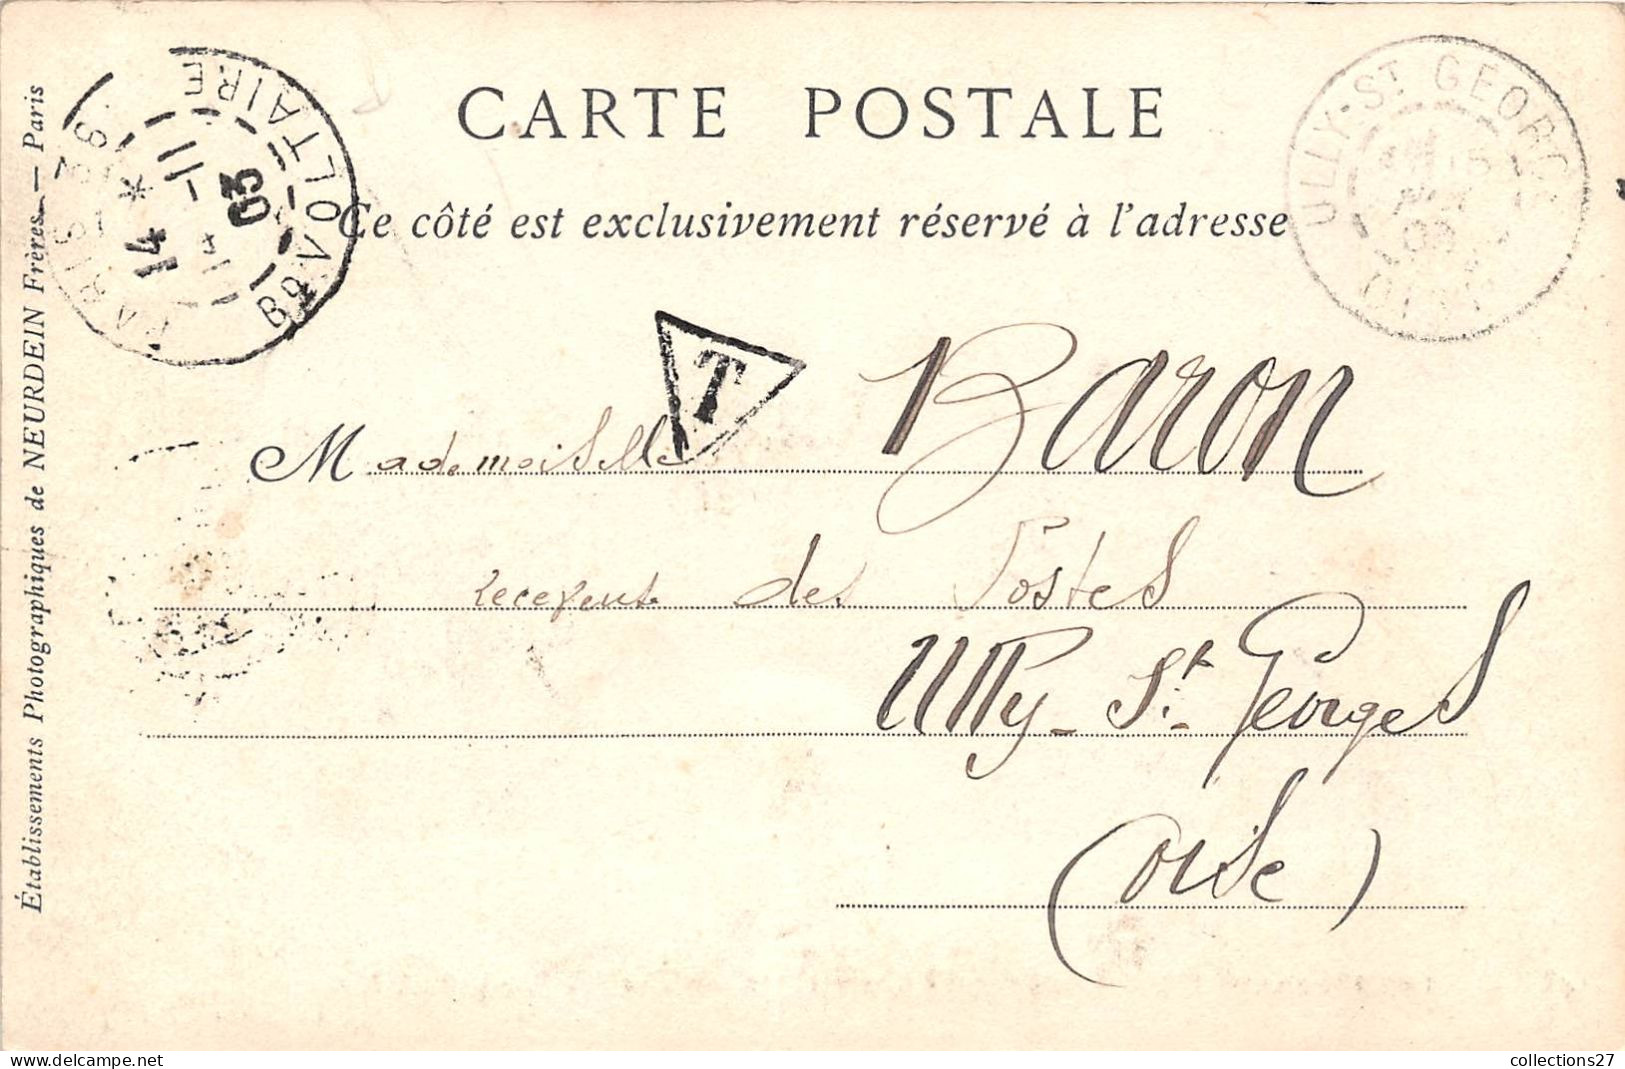 CARTE POSTALE
Ce côté est exclusivement réservé à l'adresse
PARIS
Bd VOLTAIRE
14
14 -11
03
ULLY-St GEORGES
03
OISE
T
Mademoiselle Baron
Receveuse des Postes
Ully-St-Georges
(Oise)
Établissements Photographiques de NEURDEIN Frères. — Paris
collections27